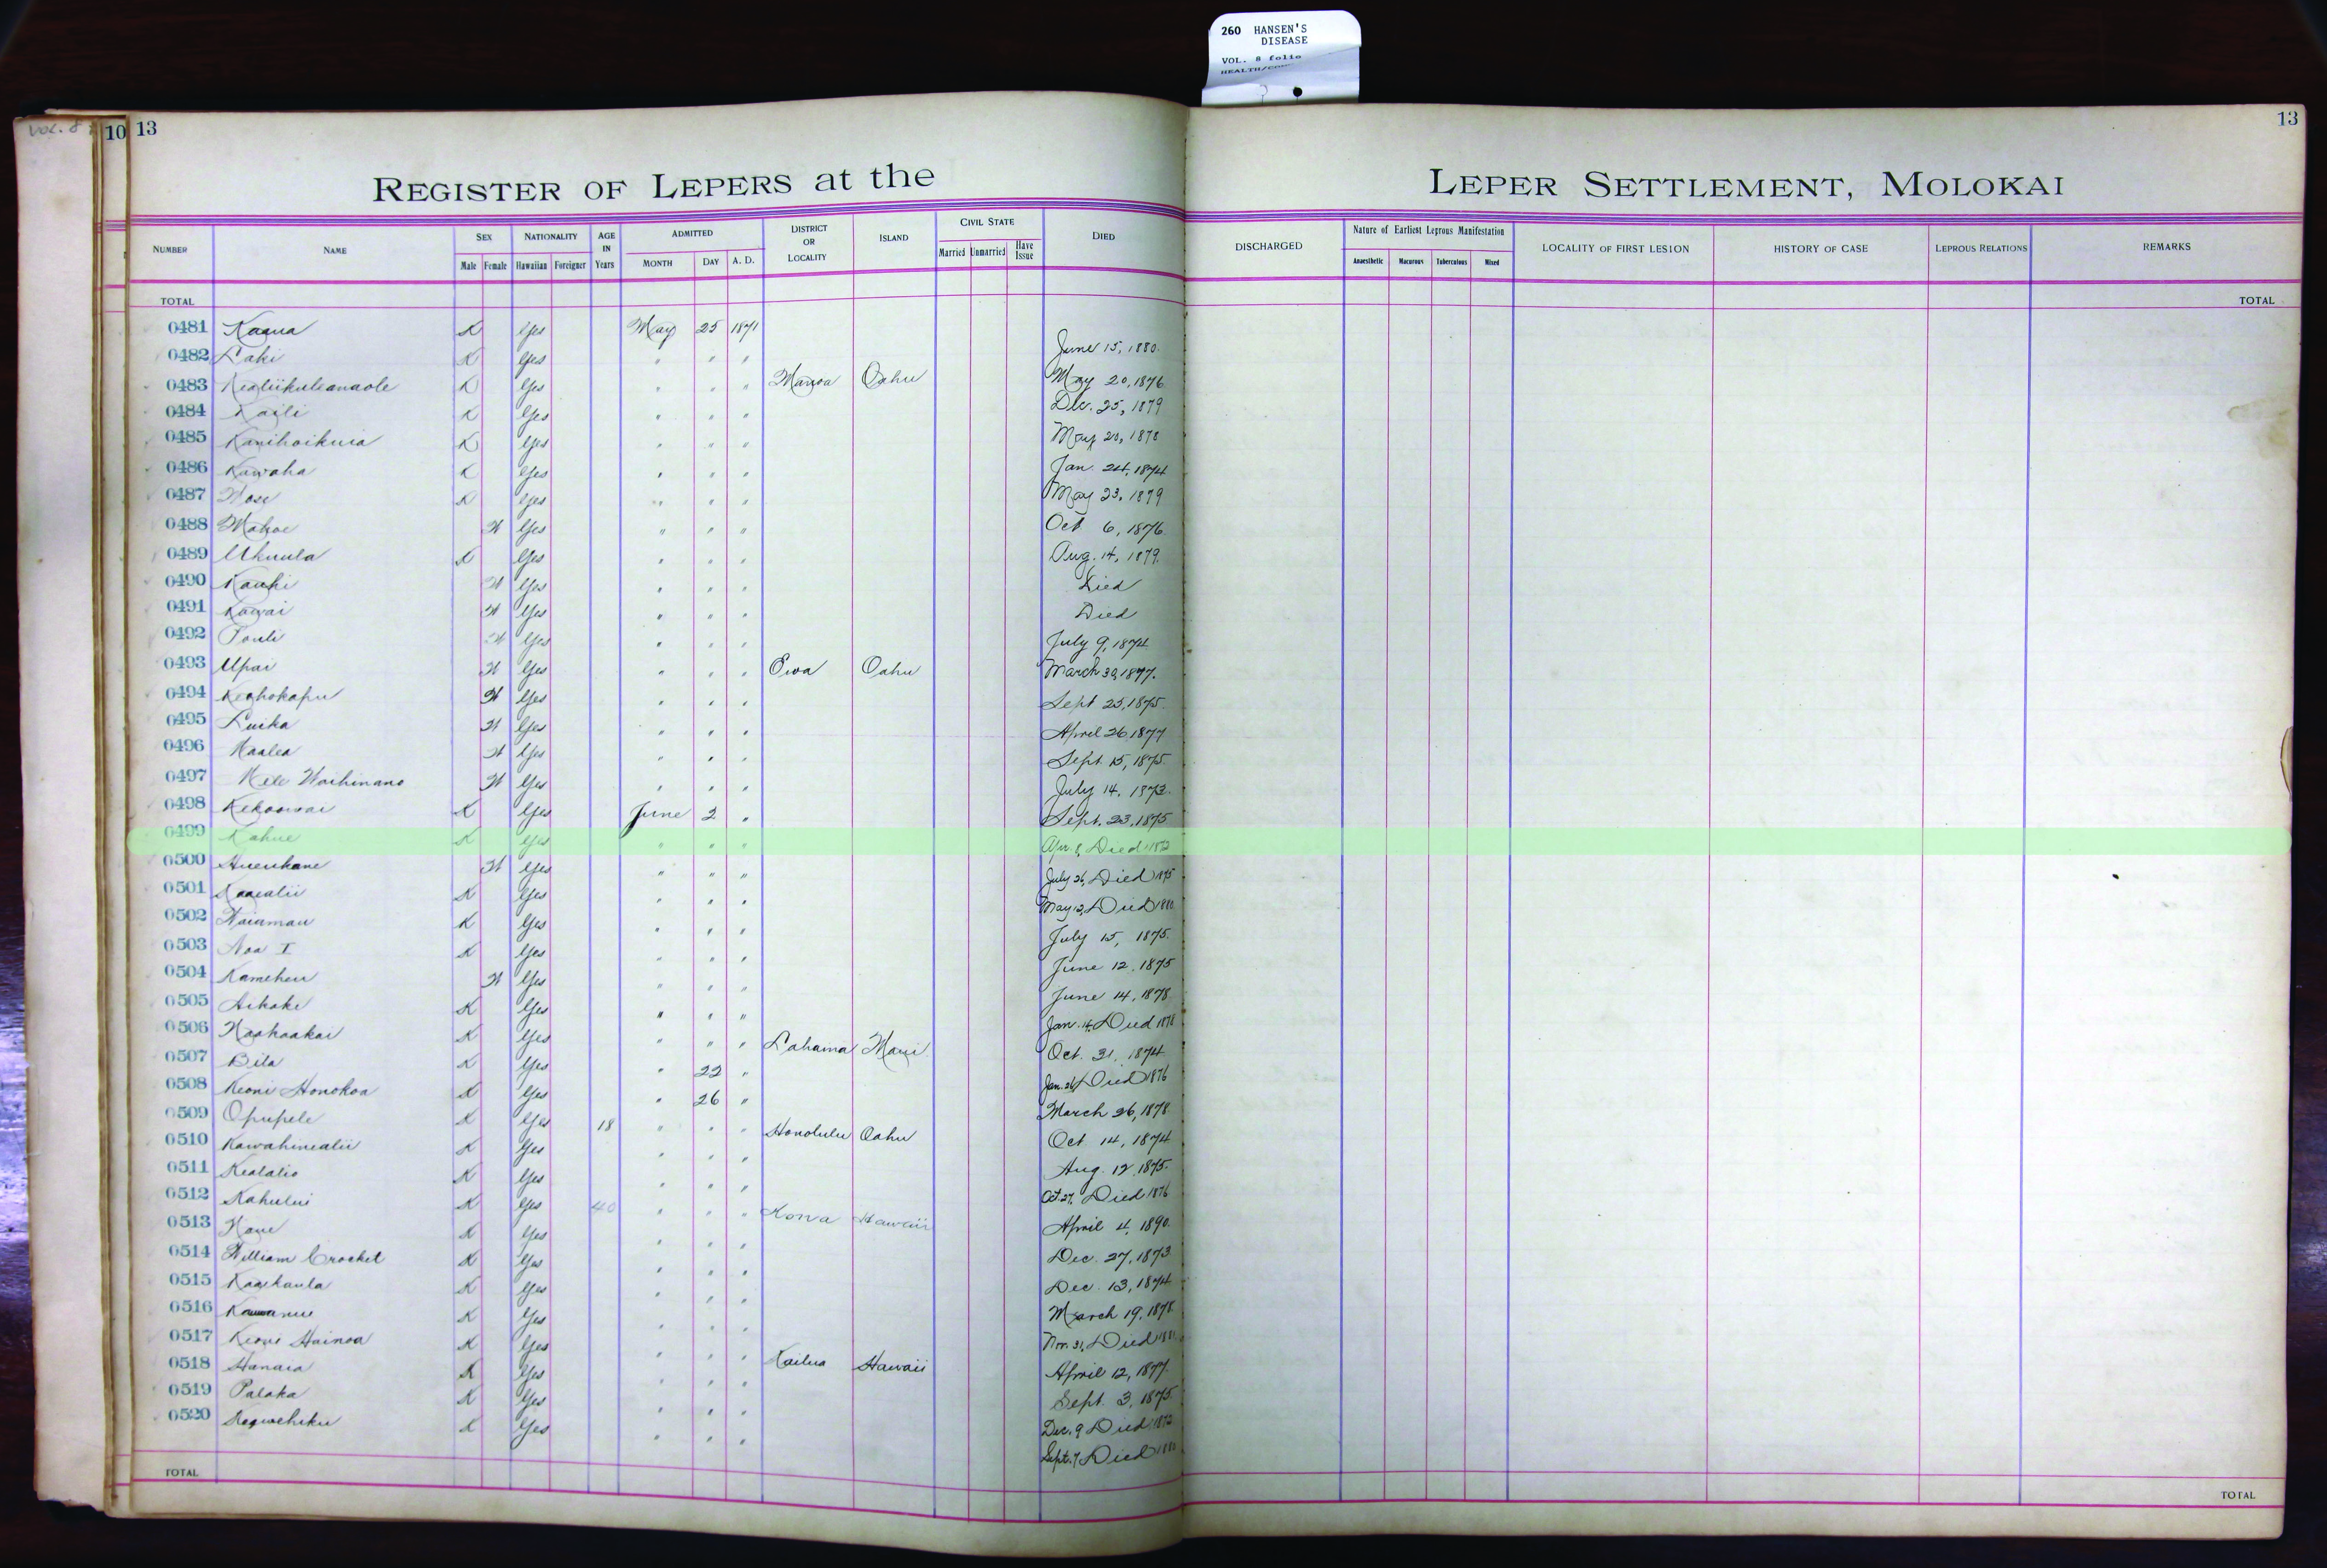 260 HANSEN'S
DISEASE
VOL. 8 folio
VOL. 8
10 13
13
REGISTER OF LEPERS at the LEPER SETTLEMENT, MOLOKAI
NUMBER NAME SEX NATIONALITY AGE IN Years ADMITTED DISTRICT OR LOCALITY ISLAND CIVIL STATE DIED DISCHARGED Nature of Earliest Leprous Manifestation LOCALITY OF FIRST LESION HISTORY OF CASE LEPROUS RELATIONS REMARKS
Male Female Hawaiian Foreigner MONTH DAY A. D. Married Unmarried Have Issue Anaesthetic Macurous Tuberculous Mixed
TOTAL TOTAL
0481 Kaaua K Yes May 25 1871
0482 Laki K Yes " " " June 15, 1880.
0483 Kealiikuleanaole K Yes " " " Manoa Oahu May 20, 1876
0484 Kaili K Yes " " " Dec. 25, 1879
0485 Kanihoikuia K Yes " " " May 20, 1878
0486 Kawaha K Yes " " " Jan. 24, 1874
0487 K Yes " " " May 23, 1879
0488 Mahoe W Yes " " " Oct 6, 1876.
0489 Ukuula K Yes " " " Aug. 14, 1879.
0490 Kauhi W Yes " " " Died
0491 Kawai W Yes " " " Died
0492 Pouli W Yes " " " July 9, 1874
0493 Upai W Yes " " " Ewa Oahu March 30, 1877.
0494 Keahokapu W Yes " " " Sept 25, 1875.
0495 Luika W Yes " " " April 26 1877
0496 Kaalea W Yes " " " Sept. 15, 1875.
0497 Mele Waihinano W Yes " " " July 14, 1873.
0498 Kekoowai K Yes June 2 " Sept. 23, 1875
0499 Kahue K Yes " " " Apr. 8, Died 1872
0500 Hueukane W Yes " " " July 26, Died 1875
0501 Kaaealii K Yes " " " May 12, Died 1880
0502 Waiamau K Yes " " " July 15, 1875.
0503 Noa I K Yes " " " June 12, 1875
0504 Kameheu W Yes " " " June 14, 1878
0505 Aikake K Yes " " " Jan. 14, Died 1878
0506 Naahaakai K Yes " " " Lahaina Maui Oct. 31, 1874
0507 Bila K Yes " 22 " Jan. 26, Died 1876
0508 Keoni Honokoa K Yes " 26 " March 26, 1878
0509 Opupele K Yes 18 " " " Honolulu Oahu Oct 14, 1874
0510 Kawahinealii K Yes " " " Aug. 12, 1875.
0511 Kealalio K Yes " " " Oct. 27, Died 1876
0512 Kahului K Yes 40 " " " Kona Hawaii April 4, 1890.
0513 K Yes " " " Dec. 27, 1873
0514 William Crocket K Yes " " " Dec. 13, 1874
0515 Kaaikaula K Yes " " " March 19, 1878
0516 K Yes " " " Nov. 31, Died
0517 Keoni Hainoa K Yes " " " Kailua Hawaii April 12, 1877.
0518 Hanaia K Yes " " " Sept. 3, 1875.
0519 Palaka K Yes " " " Dec. 9 Died 1872
0520 K Yes " " " Sept. 7, Died
TOTAL TOTAL